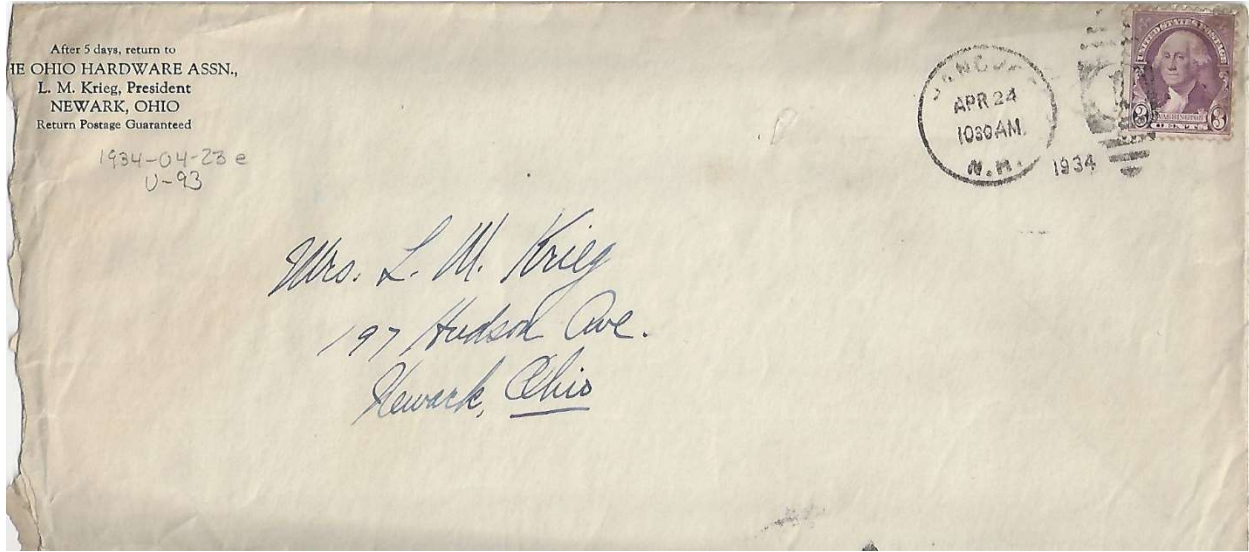 After 5 days, return to
HE OHIO HARDWARE ASSN.,
L. M. Krieg, President
NEWARK, OHIO
Return Postage Guaranteed
1934-04-23 e
U-93
APR 24
1030 AM
N.H.
1934
UNITED STATES POSTAGE
3 WASHINGTON 3
CENTS
Mrs. L. M. Krieg
197 Hudson Ave.
Newark, Ohio